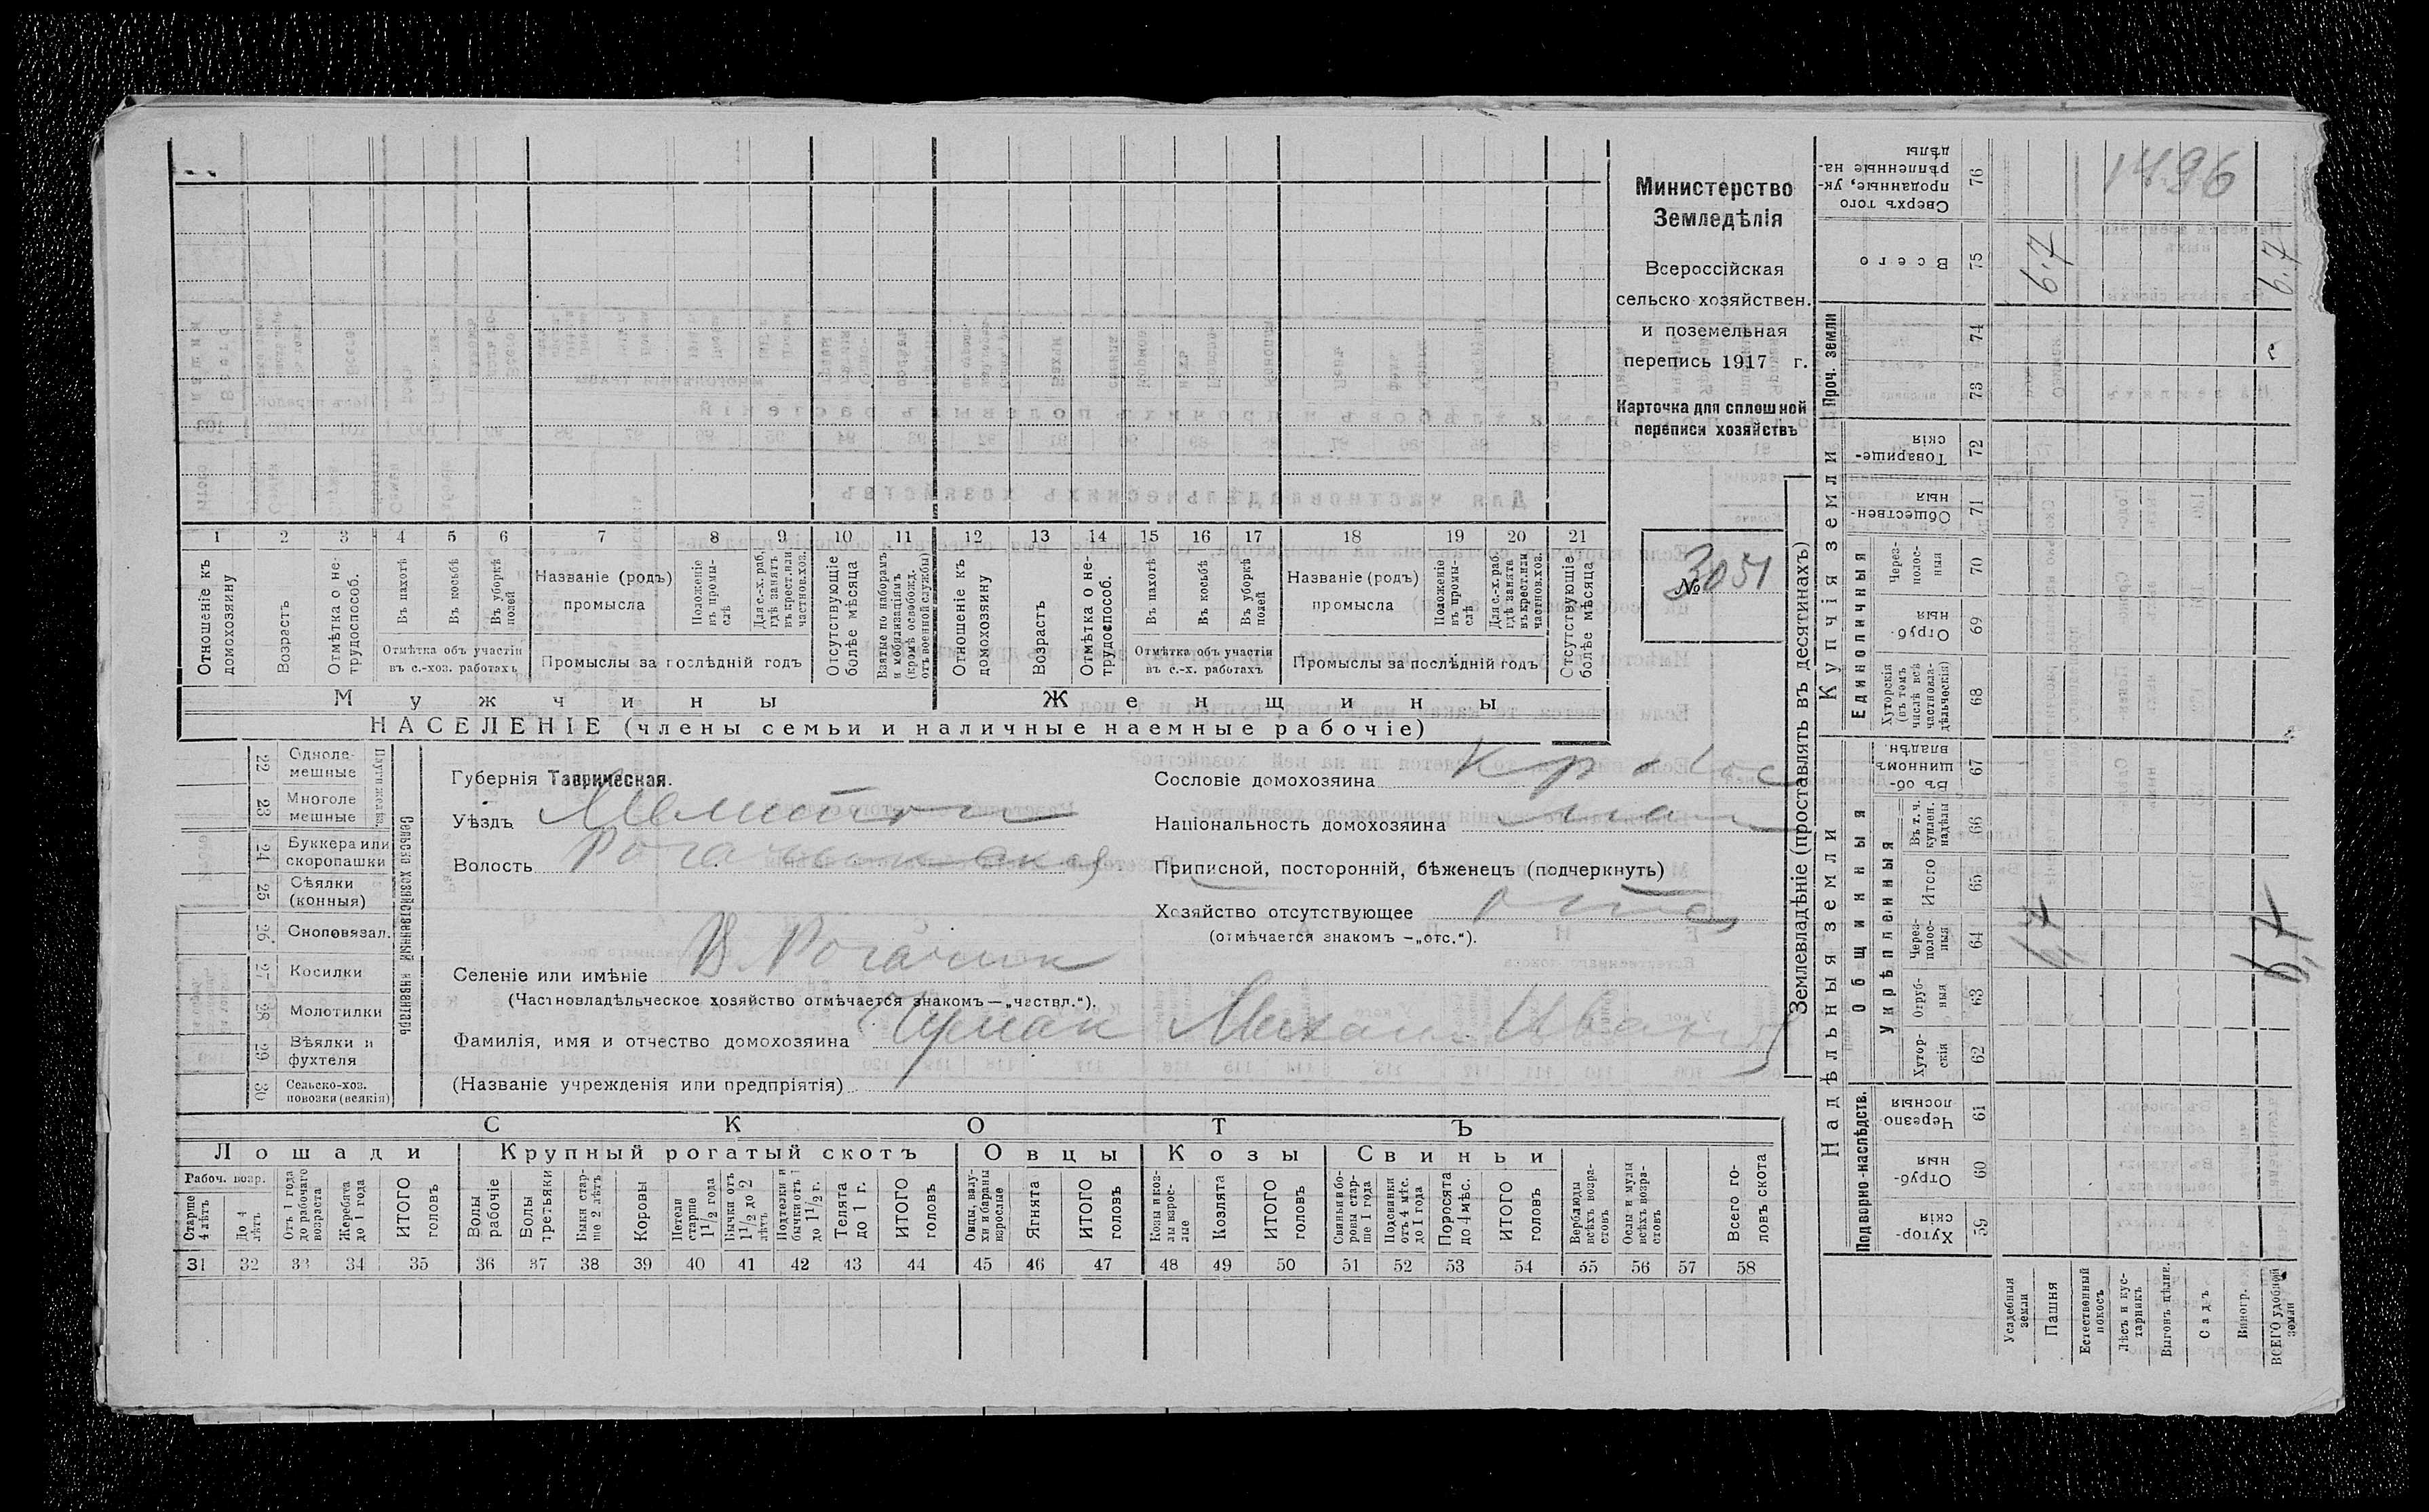 Министерство
Земледѣлія
Всероссійская
сельско-хозяйствен.
и поземельная
перепись 1917 г.
Карточка для сплошной
переписи хозяйствъ
№ 3051
1 2 3 4 5 6 7 8 9 10 11 12 13 14 15 16 17 18 19 20 21
Отношеніе къ домохозяину
Возрастъ
Отмѣтка о не-трудоспособ.
Въ пахотѣ
Въ косьбѣ
Въ уборкѣ полей
Отмѣтка объ участіи
въ с.-хоз. работахъ
Названіе (родъ)
промысла
Положеніе въ промы-слѣ
Для с.-х. раб. гдѣ занятъ въ крест. или частнов. хоз.
Промыслы за послѣдній годъ
Отсутствующіе болѣе мѣсяца
Взятые по наборамъ и мобилизаціямъ (кромѣ освобожд. отъ военной службы)
Отношеніе къ домохозяину
Возрастъ
Отмѣтка о не-трудоспособ.
Въ пахотѣ
Въ косьбѣ
Въ уборкѣ полей
Отмѣтка объ участіи
въ с.-х. работахъ
Названіе (родъ)
промысла
Положеніе въ промы-слѣ
Для с.-х. раб. гдѣ заняте въ крест. или частнов. хоз.
Промыслы за послѣдній годъ
Отсутствующіе болѣе мѣсяца
Мужчины Женщины
НАСЕЛЕНІЕ (члены семьи и наличные наемные рабочіе)
Сельско хозяйственный инвентарь
22 Одноле-мешные
23 Многоле мешные
24 Буккера или скоропашки
25 Сѣялки (конныя)
26 Сноповязал.
27 Косилки
28 Молотилки
29 Вѣялки и фухтеля
30 Сельско-хоз. повозки (всякія)
Губернія Таврическая.
Уѣздъ Мелитоп
Волость Рогачинская
Селеніе или имѣніе В Рогачик
(Частновладѣльческое хозяйство отмѣчается знакомъ—„частвл.“).
Фамилія, имя и отчество домохозяина Чумак Михаил Иванов
(Названіе учрежденія или предпріятія)
Сословіе домохозяина
Національность домохозяина
Приписной, посторонній, бѣженецъ (подчеркнуть)
Хозяйство отсутствующее отс
(отмѣчается знакомъ —„отс.“).
СКОТЪ
Лошади Крупный рогатый скотъ Овцы Козы Свиньи
Рабоч. возр.
Старше 4 лѣтъ
До 4 лѣтъ
Отъ 1 года до рабочаго возраста
Жеребята до 1 года
ИТОГО головъ
Волы рабочіе
Волы третьяки
Быки стар-ше 2 лѣтъ
Коровы
Нетели старше 1½ года
Бычки отъ 1½ до 2 лѣтъ
Подтелки и бычки отъ 1 до 1½ г.
Телята до 1 г.
ИТОГО головъ
Овцы, валу-хи и бараны взрослые
Ягнята
ИТОГО головъ
Козы и коз-лы взрос-лые
Козлята
ИТОГО головъ
Свиньи и бо-ровы стар-ше 1 года
Подсвинки отъ 4 мѣс. до 1 года
Поросята до 4 мѣс.
ИТОГО головъ
Верблюды всѣхъ возра-стовъ
Ослы и мулы всѣхъ возра-стовъ
Всего го-ловъ скота
31 32 33 34 35 36 37 38 39 40 41 42 43 44 45 46 47 48 49 50 51 52 53 54 55 56 57 58
Землевладѣніе (проставлять въ десятинахъ)
Купчія земли
Надѣльныя земли
Проч. земли
Единоличныя
Общинныя
Укрѣпленныя
Подворно-наслѣдств.
76 Сверхъ того проданные, ук-рѣпленные на-дѣлы
75 Всего
74
73
72 Товарище-скія
71 Обществен-ныя
70 Через-полос-ныя
69 Отруб-ныя
68 Хуторскія (въ томъ числѣ всѣ частновла-дѣльческія)
67 Въ об-щинномъ владѣн.
66 Въ т. ч. куплен. надѣлы
65 Итого
64 Через-полос-ныя
63 Отруб-ныя
62 Хутор-скія
61 Черезпо лосныя
60 Отруб-ныя
59 Хутор-скія
Усадебныя земли
Пашня
Естественный покосъ
Лѣсъ и кус-тарникъ
Выгонъ цѣлин.
Садъ
Виногр.
ВСЕГО удобной земли
1496
6.7
6.7
6,7
6,7